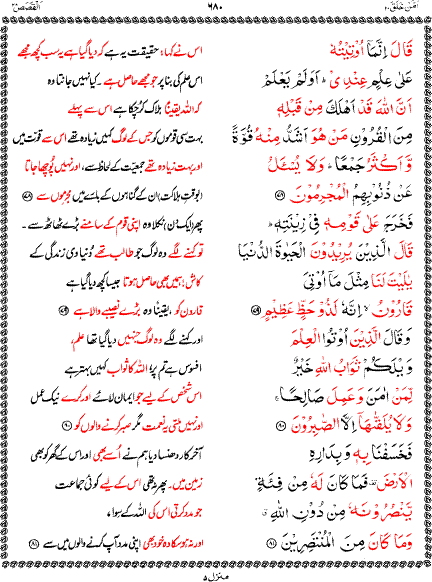 امن خلق ٢٠ ٦٨٠ القصص
قَالَ اِنَّمَآ اُوْتِيْتُهٗ اس نے کہا، حقیقت یہ ہے کہ دیا گیا ہے یہ سب کچھ مجھے
عَلٰى عِلْمٍ عِنْدِيْ ؕ اَوَلَمْ يَعْلَمْ اس علم کی بنا پر جو مجھے حاصل ہے۔ کیا نہیں جانتا وہ
اَنَّ اللّٰهَ قَدْ اَهْلَكَ مِنْ قَبْلِهٖ کہ اللہ یقینًا ہلاک کر چکا ہے اس سے پہلے
مِنَ الْقُرُوْنِ مَنْ هُوَ اَشَدُّ مِنْهُ قُوَّةً بہت سی قوموں کو جس کے لوگ کہیں زیادہ تھے اس سے قوت میں
وَّاَكْثَرُ جَمْعًا ؕ وَلَا يُسْـَٔلُ اور بہت زیادہ تھے جمعیت کے لحاظ سے، اور نہیں پُوچھا جاتا
عَنْ ذُنُوْبِهِمُ الْمُجْرِمُوْنَ ﴿٧٨﴾ (بوقتِ ہلاکت) ان کے گناہوں کے بارے میں مجرموں سے ﴿٧٨﴾
فَخَرَجَ عَلٰى قَوْمِهٖ فِيْ زِيْنَتِهٖ ؕ پھر (ایک دن) نکلا وہ اپنی قوم کے سامنے بڑے ٹھاٹھ سے۔
قَالَ الَّذِيْنَ يُرِيْدُوْنَ الْحَيٰوةَ الدُّنْيَا تو کہنے لگے وہ لوگ جو طالب تھے دُنیاوی زندگی کے
يٰلَيْتَ لَنَا مِثْلَ مَآ اُوْتِيَ کاش! ہمیں بھی حاصل ہوتا جیسا کچھ دیا گیا ہے
قَارُوْنُ ۙ اِنَّهٗ لَذُوْ حَظٍّ عَظِيْمٍ ﴿٧٩﴾ قارون کو، یقینًا وہ بڑے نصیبے والا ہے ﴿٧٩﴾
وَقَالَ الَّذِيْنَ اُوْتُوا الْعِلْمَ اور کہنے لگے وہ لوگ جنہیں دیا گیا تھا علم،
وَيْلَكُمْ ثَوَابُ اللّٰهِ خَيْرٌ افسوس ہے تم پر! اللہ کا ثواب کہیں بہتر ہے
لِّمَنْ اٰمَنَ وَعَمِلَ صَالِحًا ۚ اس شخص کے لیے جو ایمان لائے اور کرے نیک عمل
وَلَا يُلَقّٰىهَآ اِلَّا الصّٰبِرُوْنَ ﴿٨٠﴾ اور نہیں ملتی یہ نعمت مگر صبر کرنے والوں کو ﴿٨٠﴾
فَخَسَفْنَا بِهٖ وَبِدَارِهِ آخر کار دھنسا دیا ہم نے اُسے بھی اور اس کے گھر کو بھی
الْاَرْضَ ۟ فَمَا كَانَ لَهٗ مِنْ فِئَةٍ زمین میں۔ پھر نہ تھی اس کے لیے کوئی جماعت
يَّنْصُرُوْنَهٗ مِنْ دُوْنِ اللّٰهِ ؗ جو مدد کرتی اس کی اللہ کے سوا،
وَمَا كَانَ مِنَ الْمُنْتَصِرِيْنَ ﴿٨١﴾ اور نہ ہو سکا وہ خود بھی اپنی مدد آپ کرنے والوں میں سے ﴿٨١﴾
منزل ٥